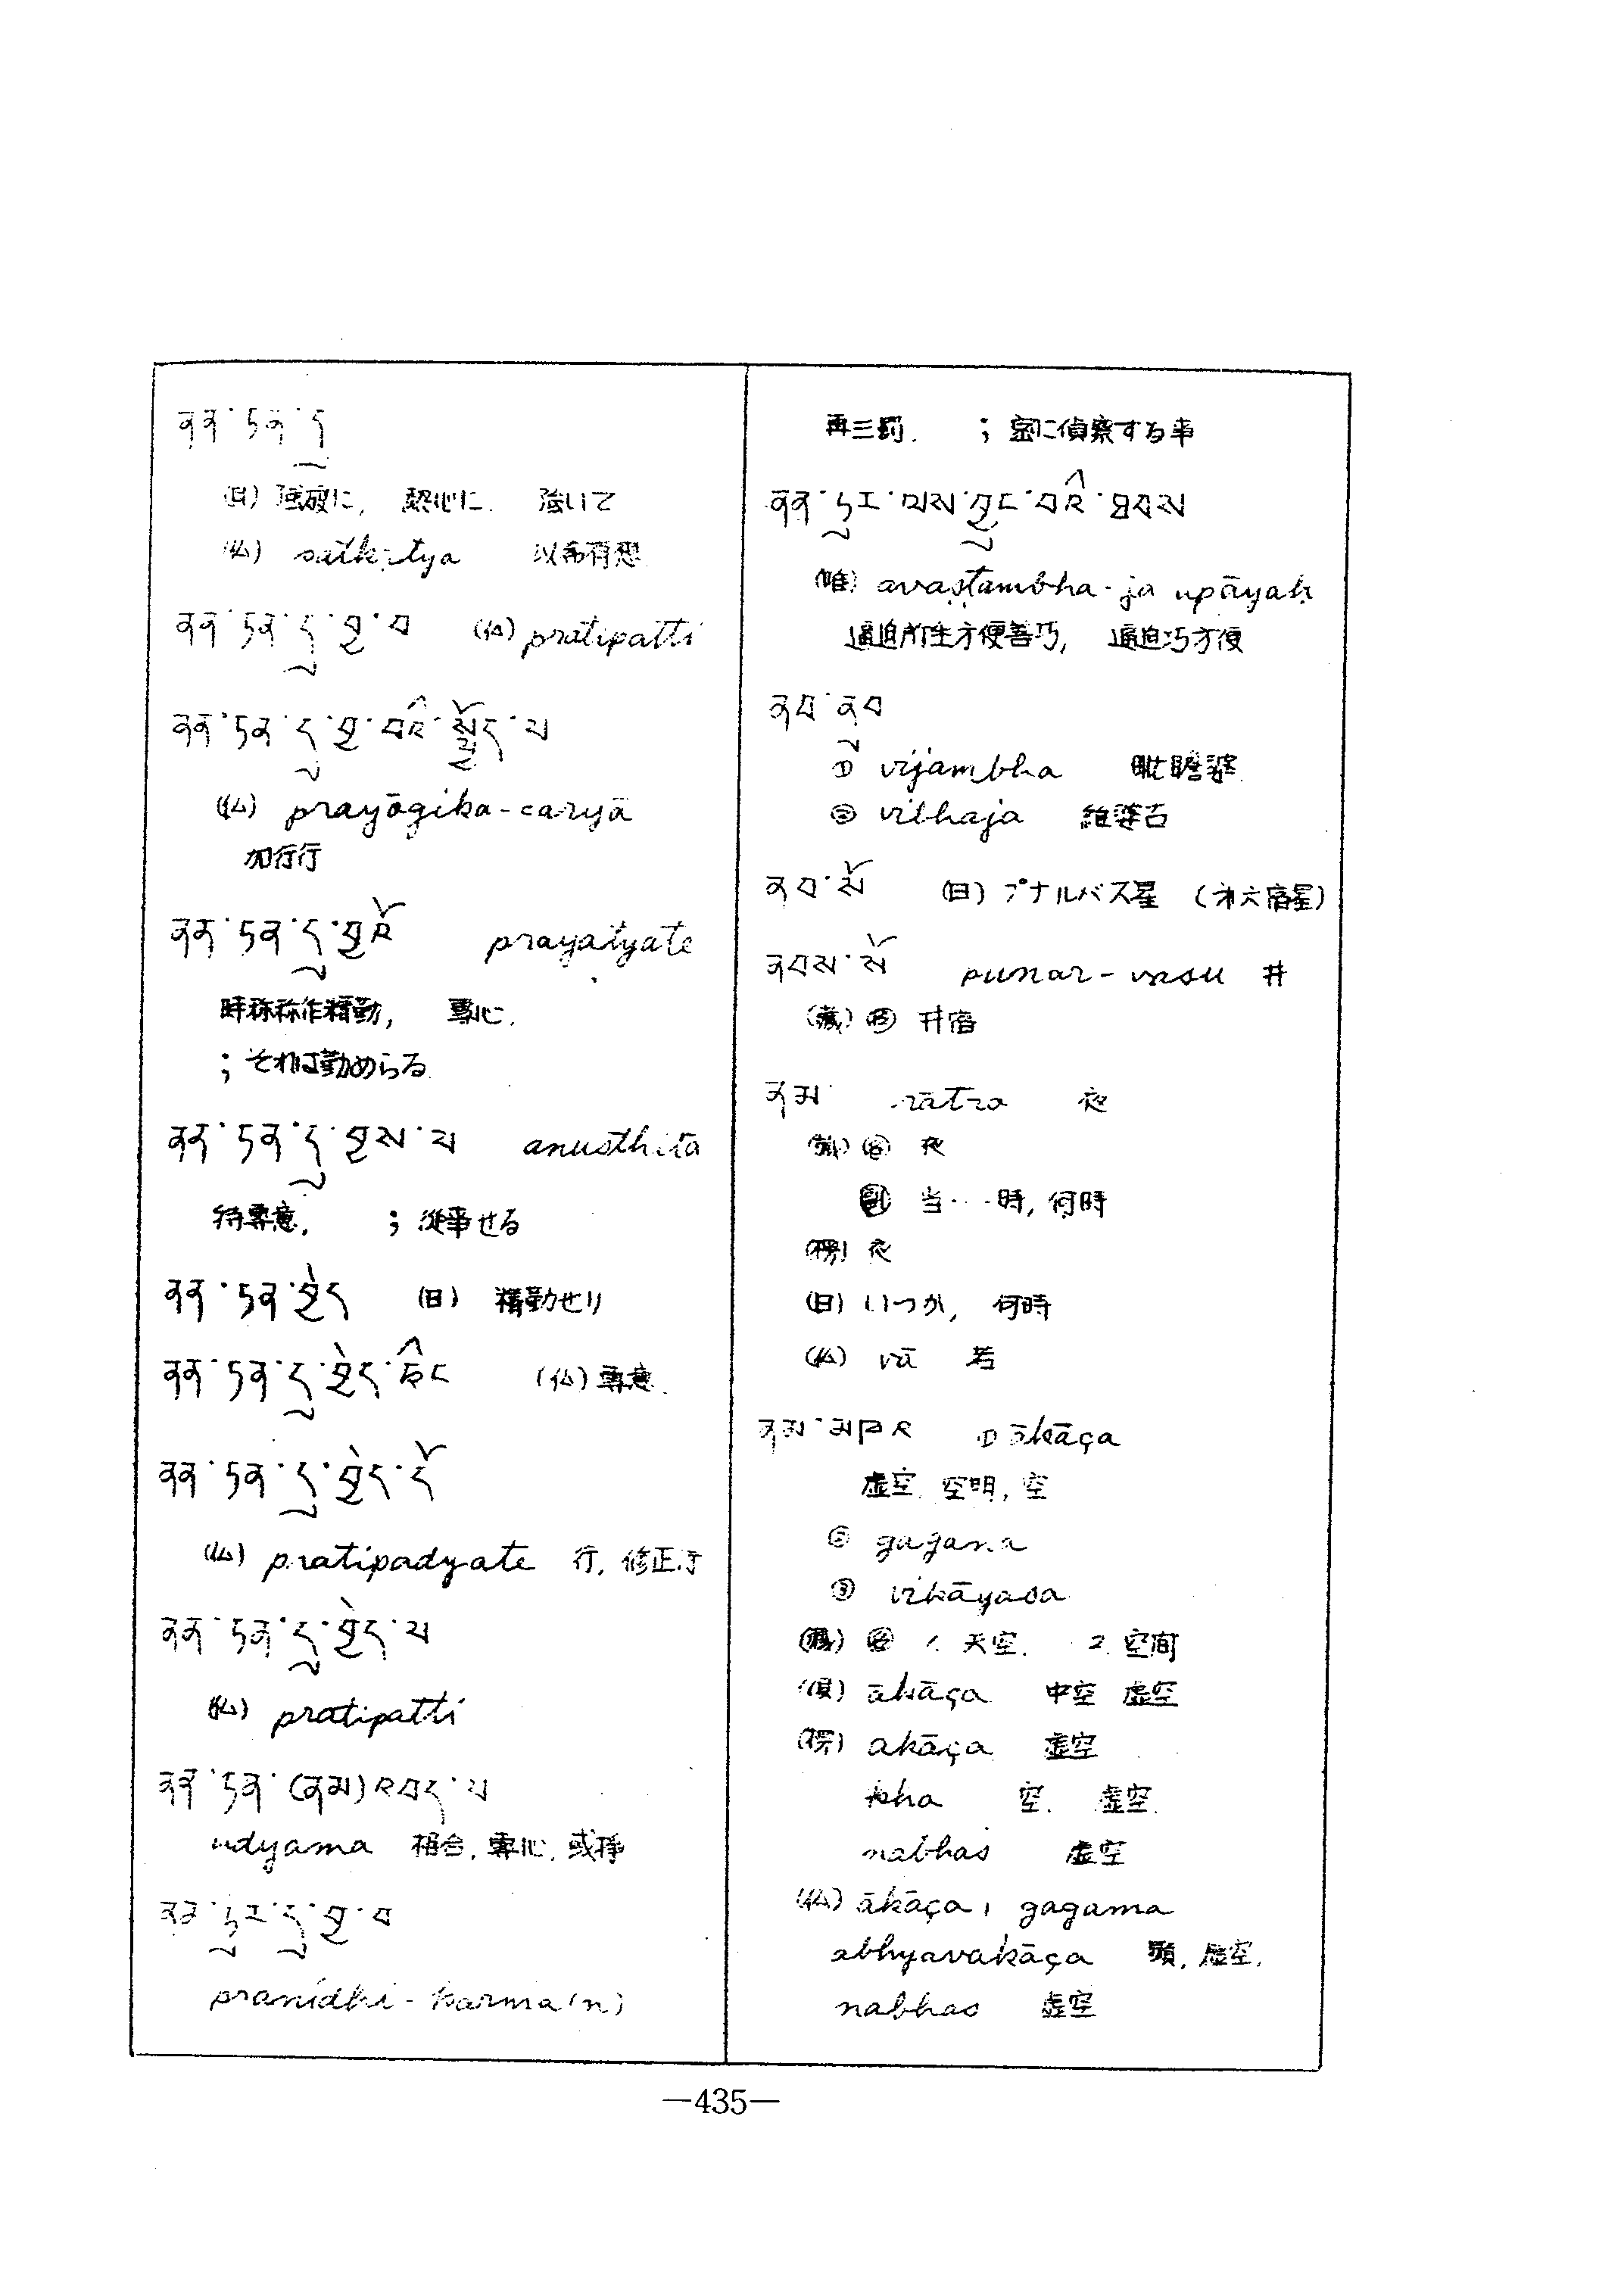 ནན་ཏན་དུ
(日) 強硬に, 熱心に. 強いて
(仏) satkṛtya 以希有想
ནན་ཏན་དུ་བྱ་བ (仏) pratipatti
ནན་ཏན་དུ་བྱ་བའི་སྤྱོད་པ
(仏) prayāgika-caryā
加行行
ནན་ཏན་དུ་བྱའོ prayatyate
時称称作精勤, 専心.
; それは勤めらる
ནན་ཏན་དུ་བྱས་པ anusthita
待専意, ; 従事せる
ནན་ཏན་བྱེད (日) 精勤せり
ནན་ཏན་དུ་བྱེད་ཅིང (仏) 専意.
ནན་ཏན་དུ་བྱེད་དོ
(仏) pratipadyate 行, 修正行
ནན་ཏན་དུ་བྱེད་པ
(仏) pratipatti
ནན་ཏན་(ནམ)འབད་པ
udyama 相合, 専心, 或挣
ནན་ཏུར་དུ་བྱ་བ
pranidhi-karma(n)
再三罰. ; 密に偵察する事
ནན་ཏུར་ལས་བྱུང་བའི་ཐབས
(唯) avaṣṭambha-ja upāyaḥ
逼迫所生方便善巧, 逼迫巧方便
ནབ་ནུབ
① vijambha 毗瞻婆
② vibhaja 維婆古
ནབ་སོ (日) プナルバス星 (才六宿星)
ནབས་སོ punar-vasu 井
(蔵) 名 井宿
ནམ rātra 夜
(蔵) 名 夜
副 当…時, 何時
(楞) 夜
(日) いつか, 何時
(仏) vā 若
ནམ་མཁའ ① ākāça
虚空. 空明, 空
② gagana
③ vikāyasa
(蔵) 名 1. 天空. 2. 空間
(倶) ākāça 中空 虚空
(楞) akāça 虚空
kha 空. 虚空.
nabhas 虚空
(仏) ākāça, gagama
abhyavakāça 顕, 虚空,
nabhas 虚空
—435—